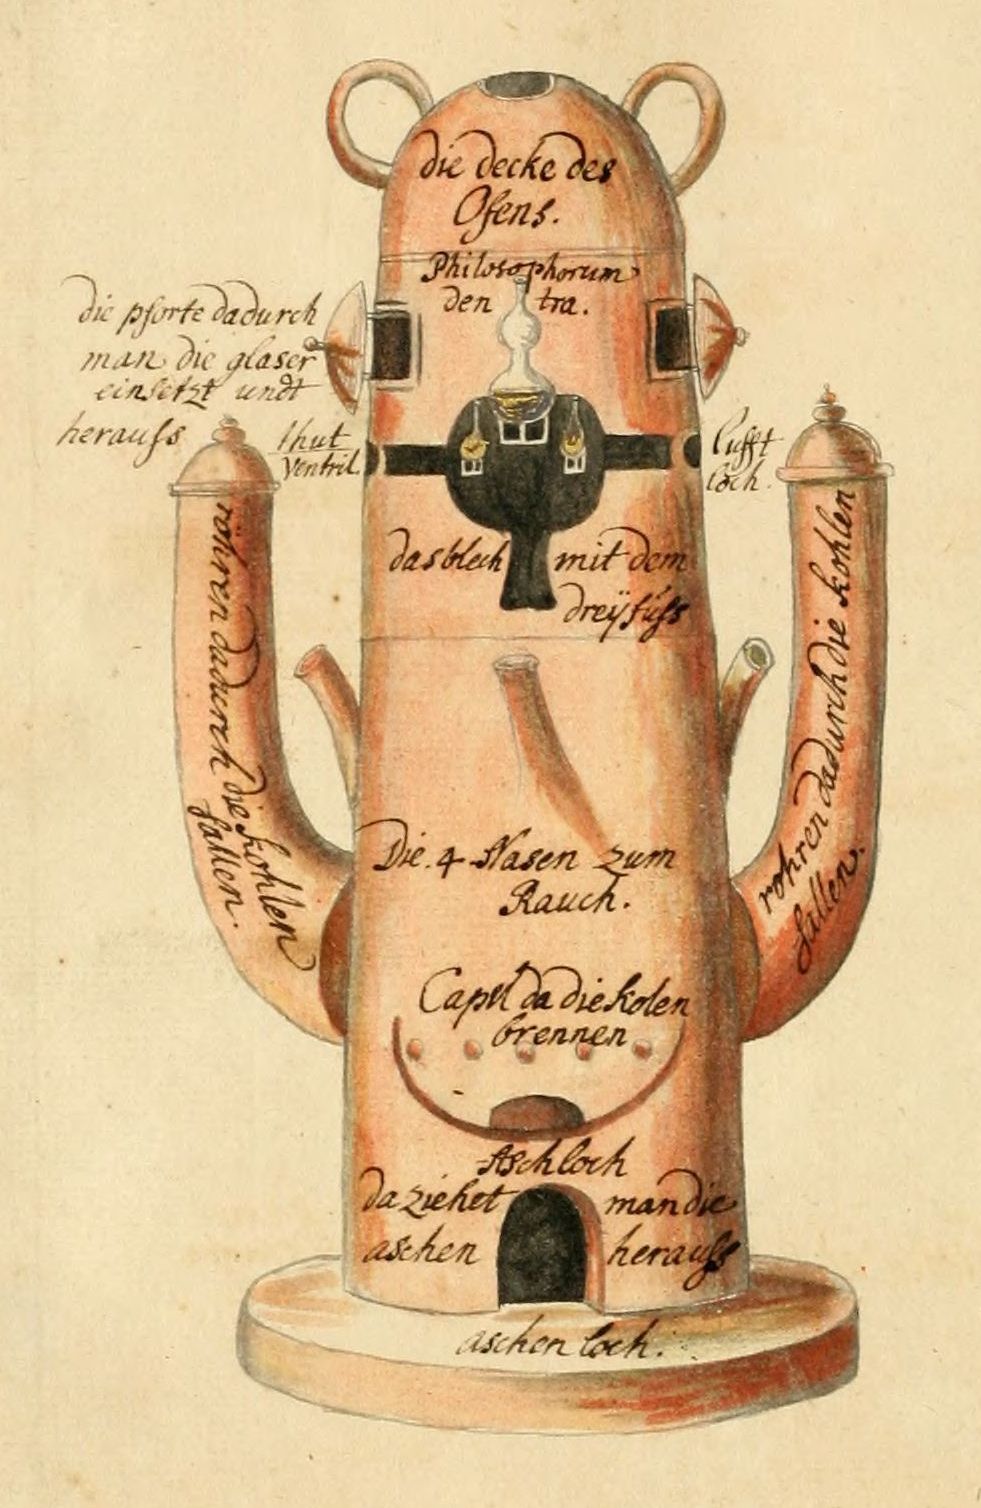 die decke des
Ofens.
Philosophorum
den tra.
die pforte dadurch
man die glaser
einsetzt undt
herauſs
thut
Ventril.
lufft
loch.
das blech mit dem
dreÿfuſs
röhren dadurch die kohlen
fallen.
rohren dadurch die kohlen
fallen.
Die 4 Nasen zum
Rauch.
Capsl da die kolen
brennen
Aschloch
da ziehet man die
aschen herauſs
aschen loch.